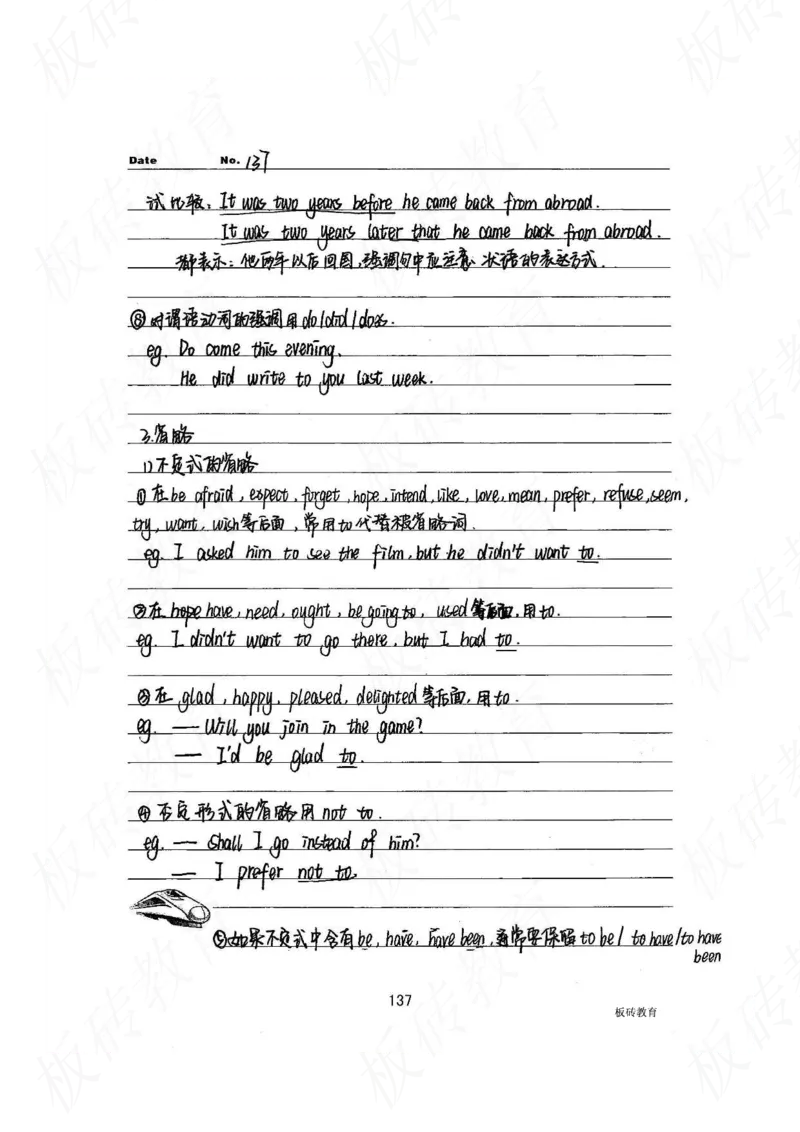 Date No. 137
试比较：It was two years before he came back from abroad.
It was two years later that he came back from abroad.
都表示：他两年以后回国，强调句中应注意状语的表达方式.
⑥对谓语动词的强调用do/did/does.
eg. Do come this evening.
He did write to you last week.
3.省略
1)不定式的省略
①在be afraid, expect, forget, hope, intend, like, love, mean, prefer, refuse, seem,
try, want, wish等后面，常用to代替被省略词.
eg. I asked him to see the film, but he didn't want to.
②在 have, need, ought, be going to, used等后面,用to.
eg. I didn't want to go there, but I had to.
③在 glad, happy, pleased, delighted等后面,用to.
eg. — Will you join in the game?
— I'd be glad to.
④否定形式的省略用 not to.
eg. — Shall I go instead of him?
— I prefer not to.
⑤如果不定式中含有be, have, have been, 通常要保留to be/ to have/to have
been
137
板砖教育